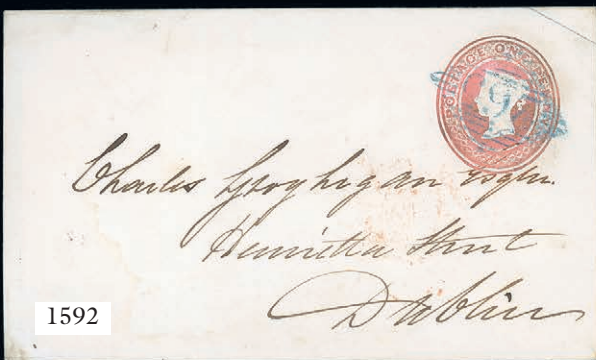 POSTAGE ONE PENNY
Charles Geoghegan Esqre.
Henrietta Street
Dublin
1592